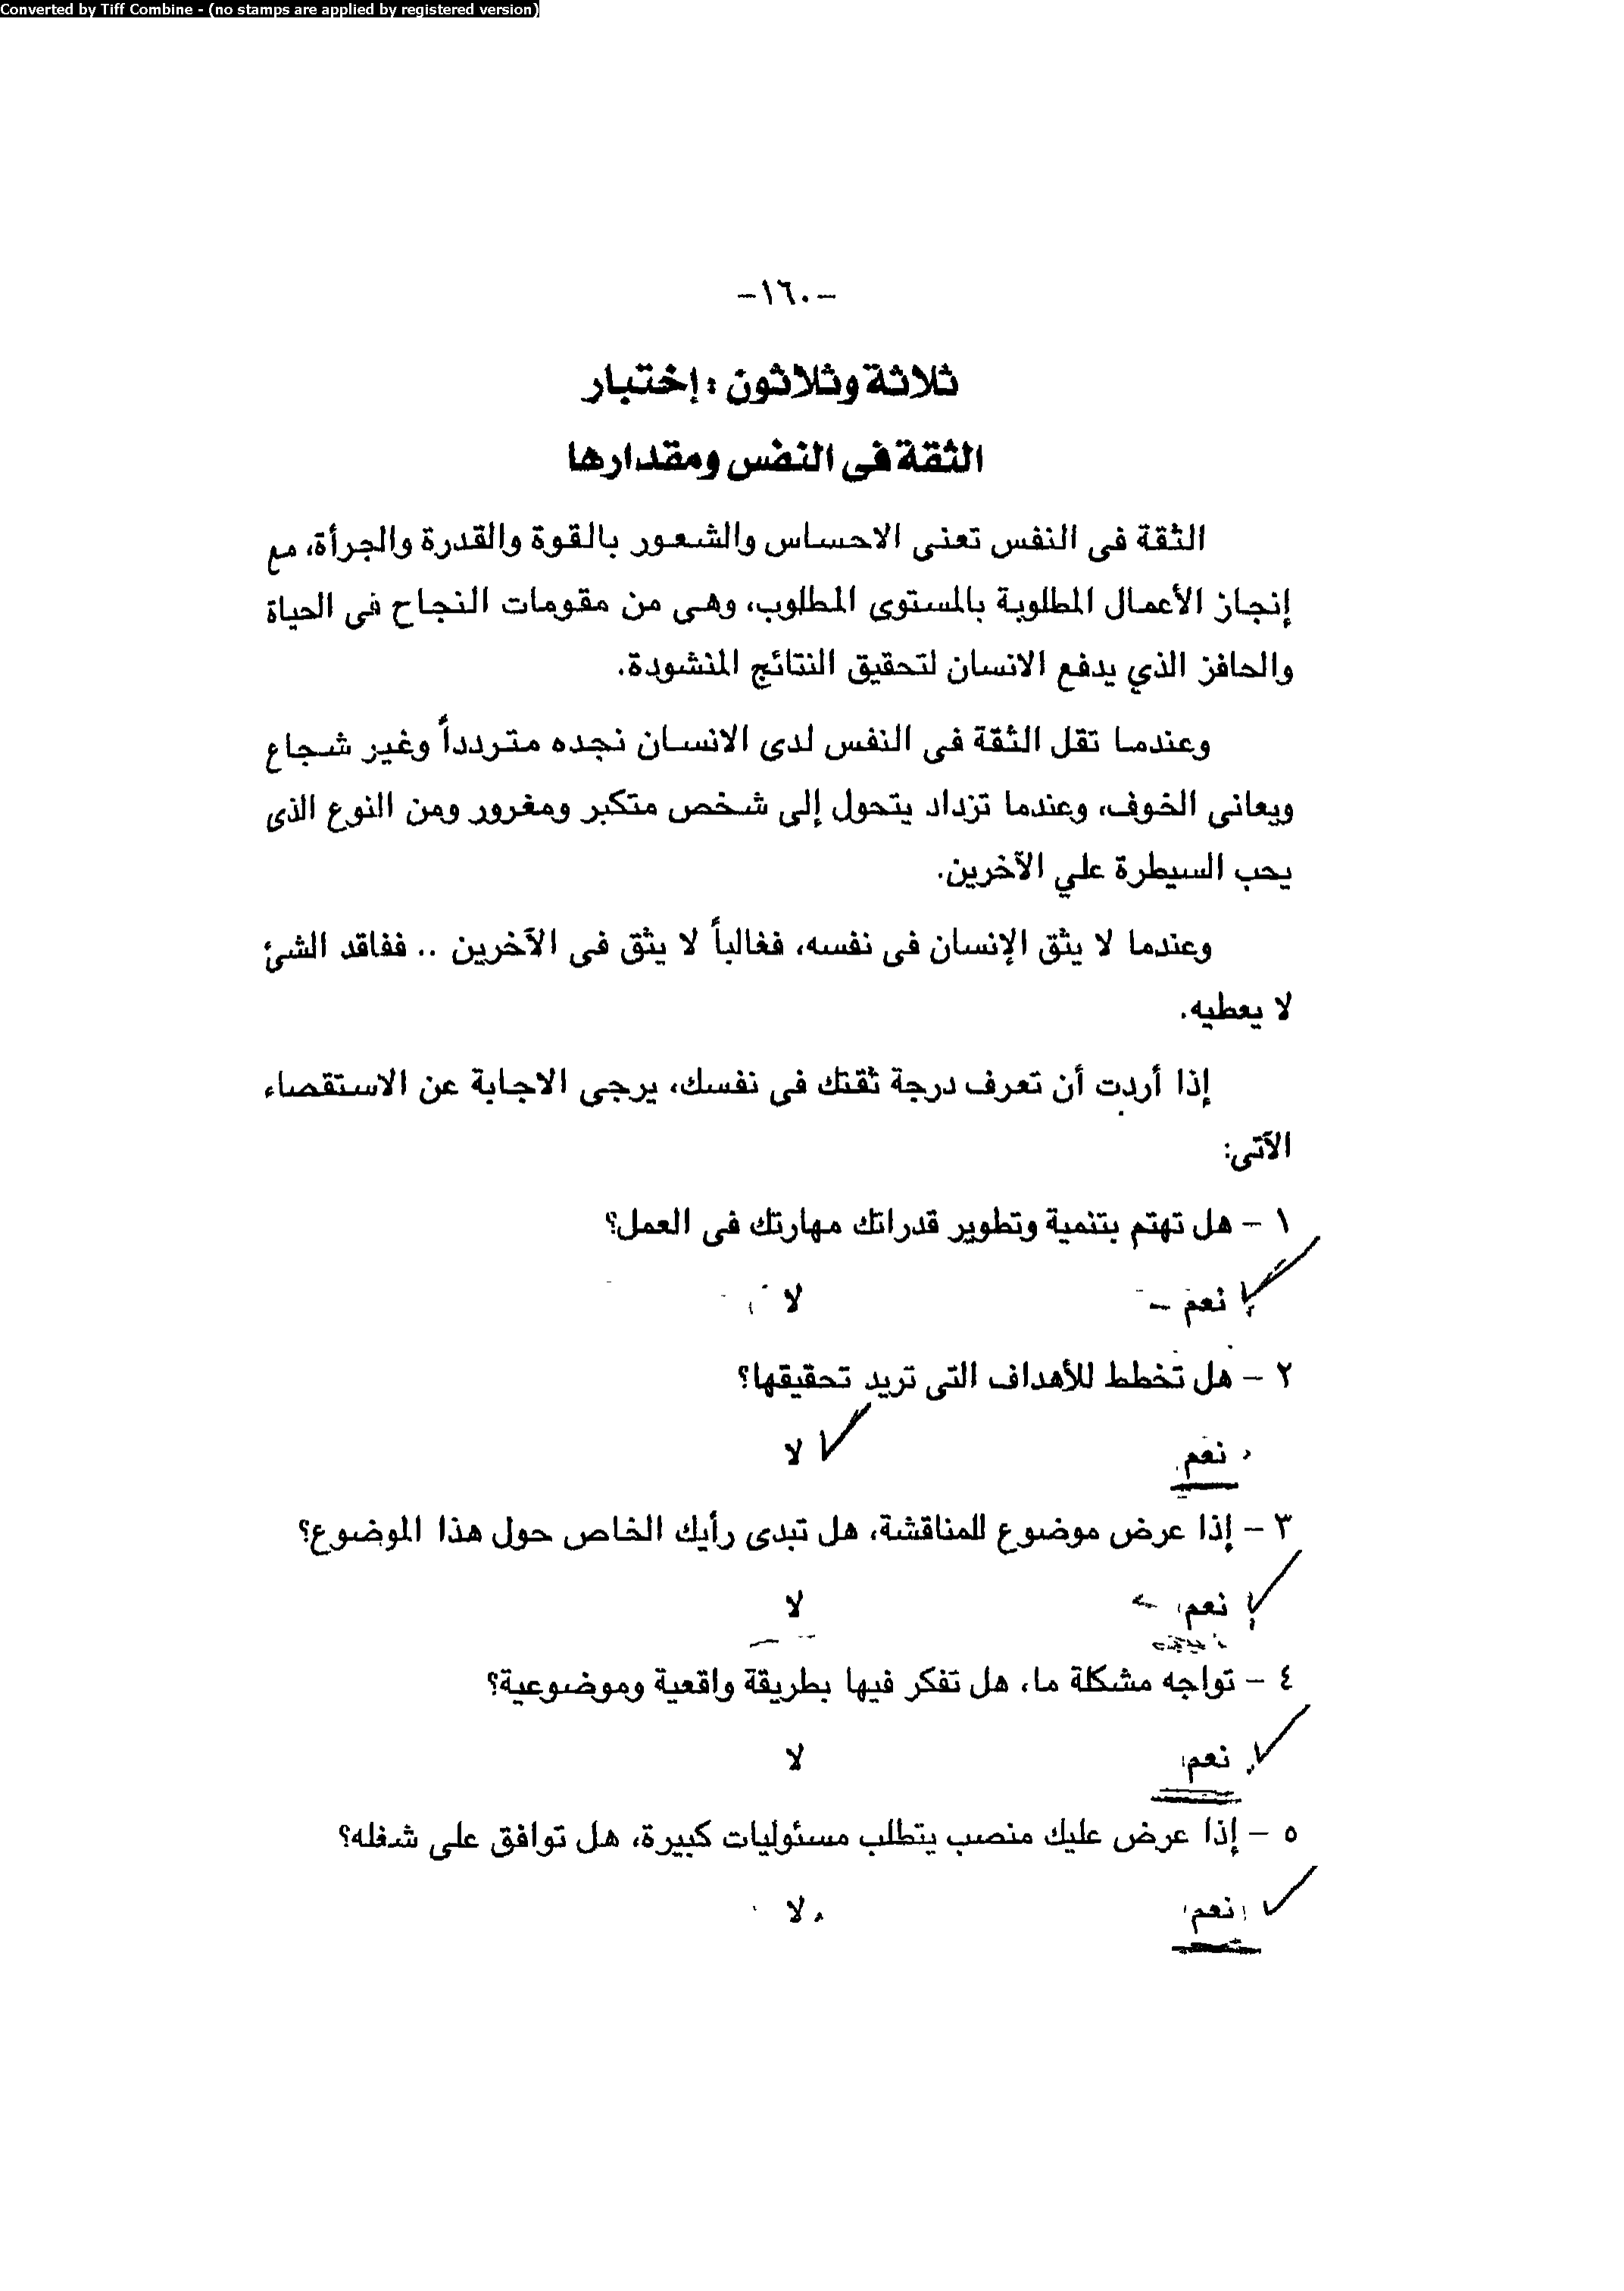 Converted by Tiff Combine - (no stamps are applied by registered version)
-١٦٠-
ثلاثة وثلاثون : إختبار
الثقة فى النفس ومقدارها
الثقة فى النفس تعنى الاحساس والشعور بالقوة والقدرة والجرأة، مع
إنجاز الأعمال المطلوبة بالمستوى المطلوب، وهى من مقومات النجاح فى الحياة
والحافز الذي يدفع الانسان لتحقيق النتائج المنشودة.
وعندما تقل الثقة فى النفس لدى الانسان نجده متردداً وغير شجاع
ويعانى الخوف، وعندما تزداد يتحول إلى شخص متكبر ومغرور ومن النوع الذى
يحب السيطرة علي الآخرين.
وعندما لا يثق الإنسان فى نفسه، فغالباً لا يثق فى الآخرين .. ففاقد الشئ
لا يعطيه.
إذا أردت أن تعرف درجة ثقتك فى نفسك، يرجى الاجابة عن الاستقصاء
الآتى:
١ - هل تهتم بتنمية وتطوير قدراتك مهارتك فى العمل؟
✓ نعم لا
٢ - هل تخطط للأهداف التى تريد تحقيقها؟
نعم ✓ لا
٣ - إذا عرض موضوع للمناقشة، هل تبدى رأيك الخاص حول هذا الموضوع؟
✓ نعم لا
٤ - تواجه مشكلة ما، هل تفكر فيها بطريقة واقعية وموضوعية؟
✓ نعم لا
٥ - إذا عرض عليك منصب يتطلب مسئوليات كبيرة، هل توافق على شغله؟
✓ نعم لا